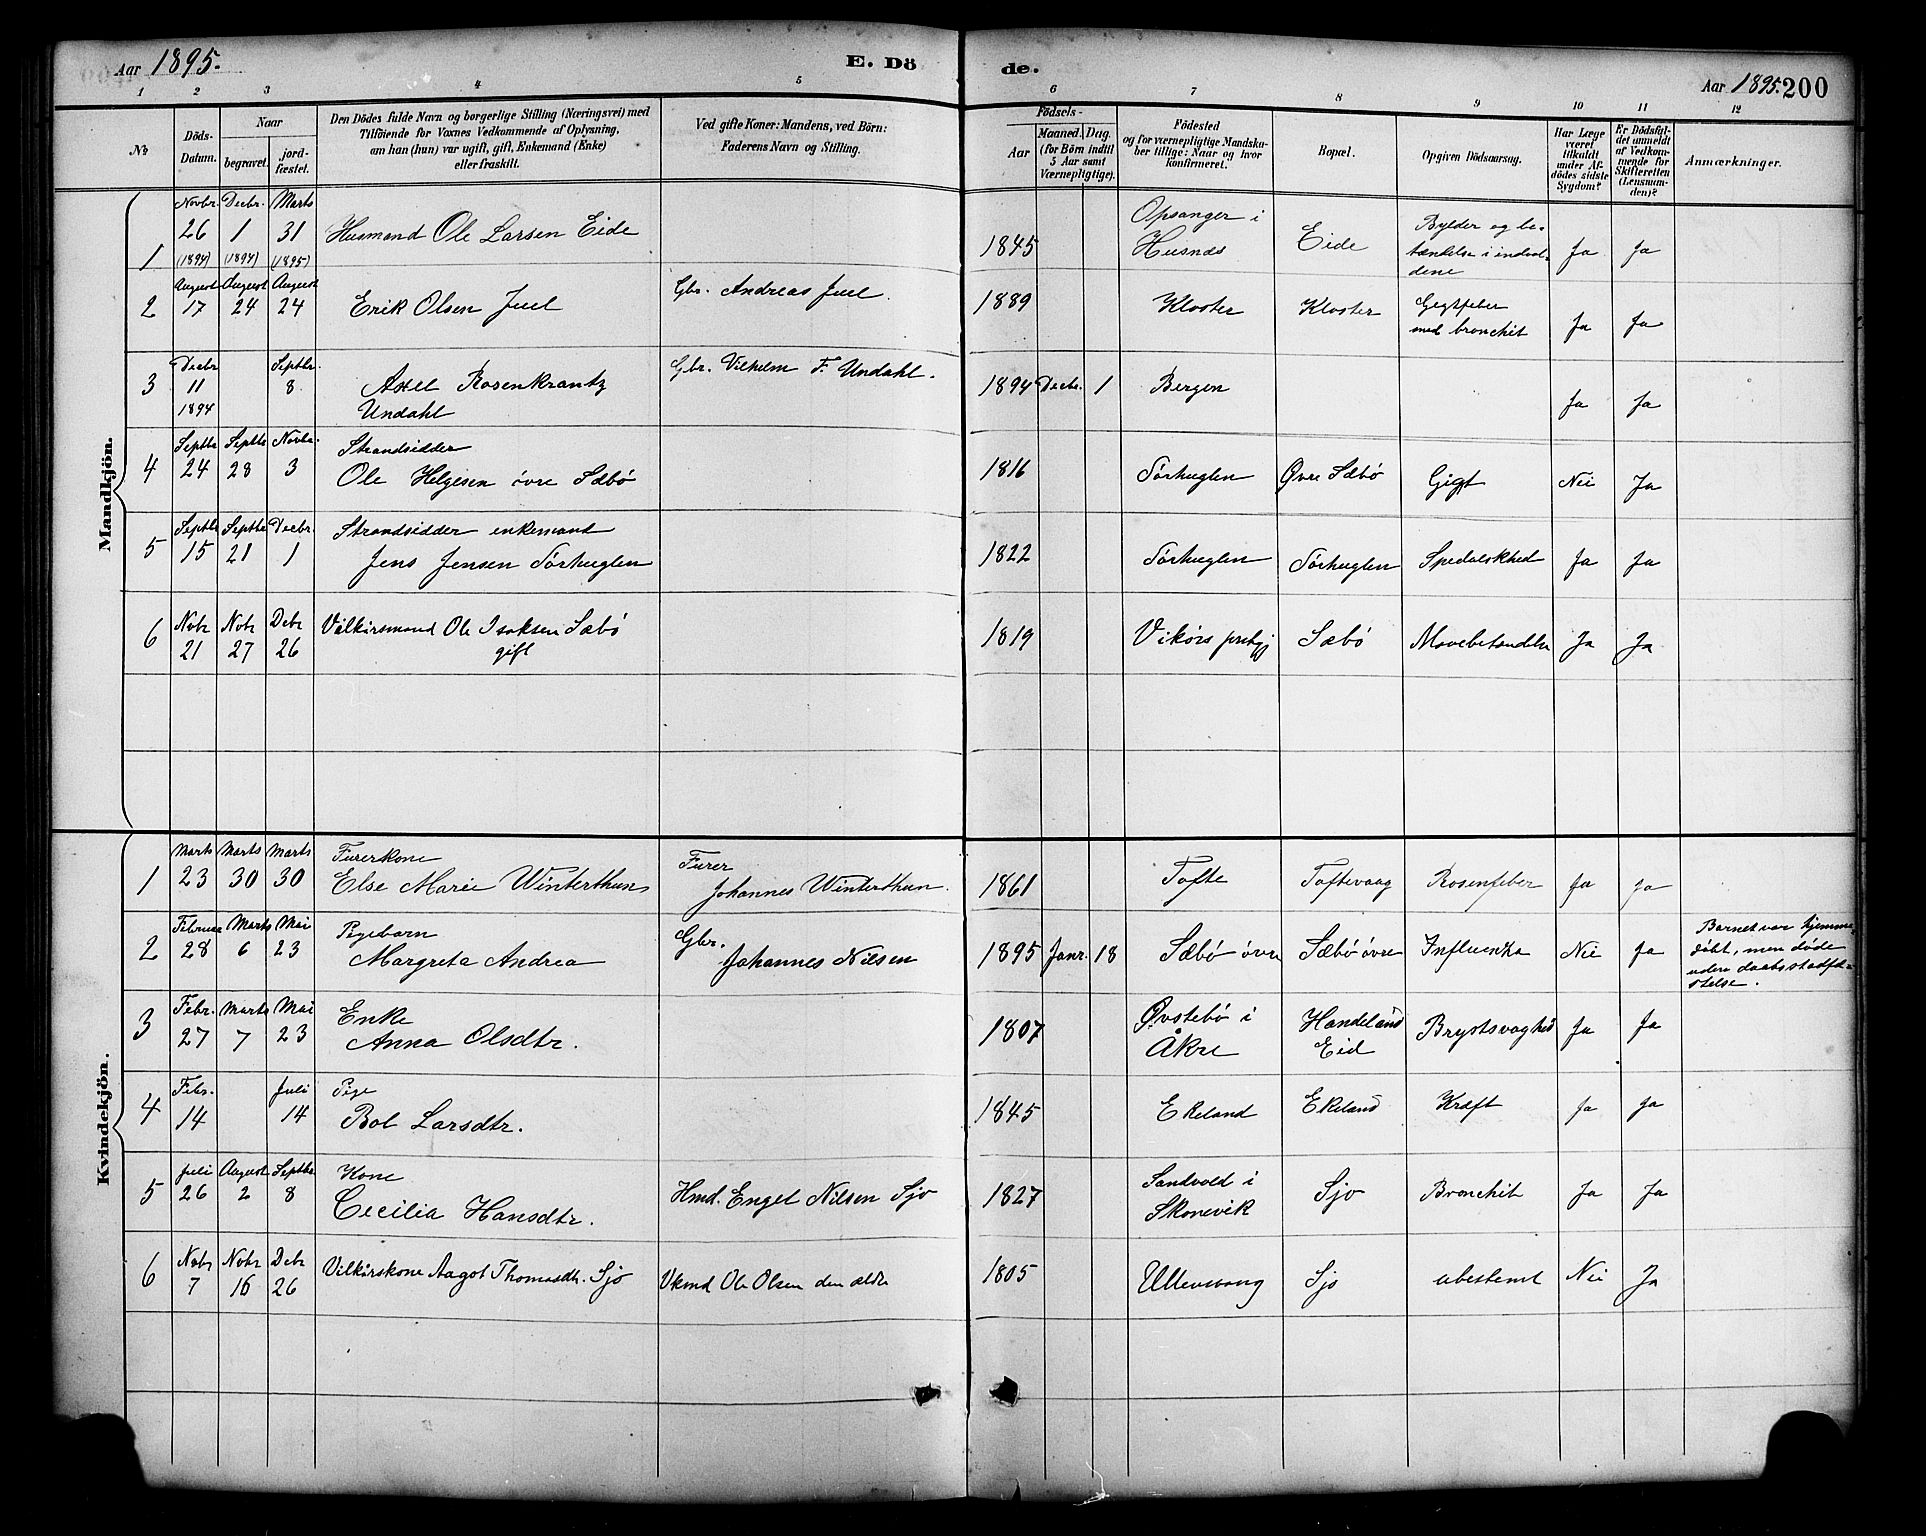 Aar 1895.
E. Dö de.
Aar 1895. 200
1 2 3 4 5 6 7 8 9 10 11 12
No
Döds-Datum.
Naar
begravet.
jordfæstet.
Den Dödes fulde Navn og borgerlige Stilling (Næringsvei) med
Tilföiende for Voxnes Vedkommende af Oplysning,
om han (hun) var ugift, gift, Enkemand (Enke)
eller fraskilt.
Ved gifte Koner: Mandens, ved Börn:
Faderens Navn og Stilling.
Födsels-
Aar
Maaned. Dag.
(for Börn indtil
5 Aar samt
Værnepligtige).
Födested
og for værnepligtige Mandskaber tillige: Naar og hvor
konfirmeret.
Bopæl.
Opgiven Dödsaarsag.
Har Læge
været
tilkaldt
under Afdödes sidste
Sygdom?
Er Dödsfaldet anmeldt
af Vedkommende for
Skifteretten
(Lensmanden)?
Anmærkninger.
Mandkjön.
1 Novbr. 26 (1894) Decbr. 1 (1894) Marts 31 (1895) Husmand Ole Larsen Eide 1845 Opsanger i Husnæs Eide Bylder og betændelse i indvoldene Ja Ja
2 August 17 August 24 August 24 Erik Olsen Juel Gbr. Andreas Juel. 1889 Kloster Kloster Gigtfeber med bronchit Ja Ja
3 Decbr 11 1894 Septbr. 8 Axel Rosenkrantz Undahl Gbr. Vilhelm F. Undahl. 1894 Decbr. 1 Bergen Ja Ja
4 Septbr 24 Septbr 28 Novbr. 3 Strandsidder Ole Helgesen øvre Sæbø 1816 Sørhuglen Øvre Sæbø Gigt Nei Ja
5 Septbr 15 Septbr 21 Decbr. 1 Strandsidder enkemand Jens Jensen Sørhuglen 1822 Sørhuglen Sørhuglen Spedalskhed Ja Ja
6 Nobr 21 Nobr 27 Debr 26 Vilkårsmand Ole Isaksen Sæbø gift 1819 Vikørs prstgj Sæbø Mavebetændelse Ja Ja
Kvindekjön.
1 Marts 23 Marts 30 Marts 30 Furerkone Else Marie Winterthun Furer Johannes Winterthun. 1861 Tofte Toftevaag Rosenfeber Ja Ja
2 Februar 28 Marts 6 Mai 23 Pigebarn Margreta Andrea Gbr. Johannes Nilsen 1895 Janr. 18 Sæbø øvre Sæbø øvre Influenka Nei Ja Barnet var hjemmedøbt, men døde uden daabsstadfæstelse.
3 Febr. 27 Marts 7 Mai 23 Enke Anna Olsdtr. 1807 Øvstebø i Åkre Handeland Eid Brystsvaghed Ja Ja
4 Febr. 14 Juli 14 Pige Bol Larsdtr. 1845 Ekeland Ekeland Kræft Ja Ja
5 Juli 26 August 2 Septbr 8 Kone Cecilia Hansdtr. Hmd. Engel Nilsen Sjo 1827 Sandvold i Skonevik Sjo Bronchit Ja Ja
6 Nobr 7 Nobr 16 Debr 26 Vilkårskone Aagot Thomasdtr. Sjo Vkmd Ole Olsen den ældre 1805 Ullensvang Sjo ubestemt Nei Ja